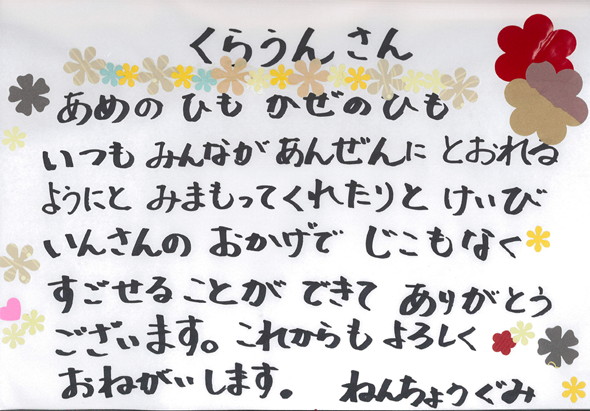 くらうんさん
あめの ひも かぜのひも
いつも みんなが あんぜんに とおれる
ようにと みまもってくれたりと けいび
いんさんの おかげで じこもなく
すごせる ことが できて ありがとう
ございます。これからも よろしく
おねがいします。 ねんちょうぐみ